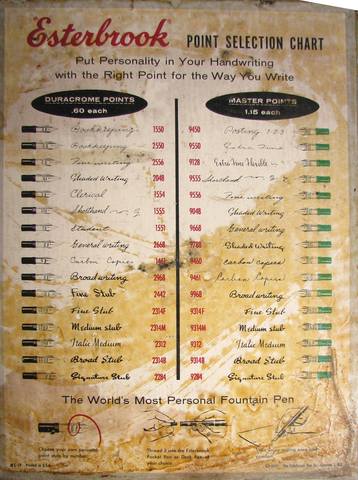 Esterbrook POINT SELECTION CHART
Put Personality in Your Handwriting
with the Right Point for the Way You Write
DURACROME POINTS MASTER POINTS
.60 each 1.15 each
Bookkeeping 1550 9450 Posting 1·2·3
Bookkeeping 2550 9550 Extra Fine
Fine writing 2556 9128 Extra Fine Flexible
Shaded Writing 2048 9555 Shorthand
Clerical 1554 9556 Fine writing
Shorthand 1555 9048 Shaded Writing
Student 1551 9668 General Writing
General writing 2668 9788 Shaded Writing
Carbon Copies 1461 9460 carbon copies
Broad writing 2968 9461 Carbon Copies
Fine Stub 2442 9968 Broad writing
Fine Stub 2314F 9314F Fine Stub
Medium stub 2314M 9314M Medium stub
Italic Medium 2312 9312 Italic Medium
Broad Stub 2314B 9314B Broad Stub
Signature Stub 2284 9284 Signature Stub
The World's Most Personal Fountain Pen
Choose your own personal
point style by number.
Thread it into the Esterbrook
Pocket Pen or Desk Pen of
your choice
Printed in U.S.A.